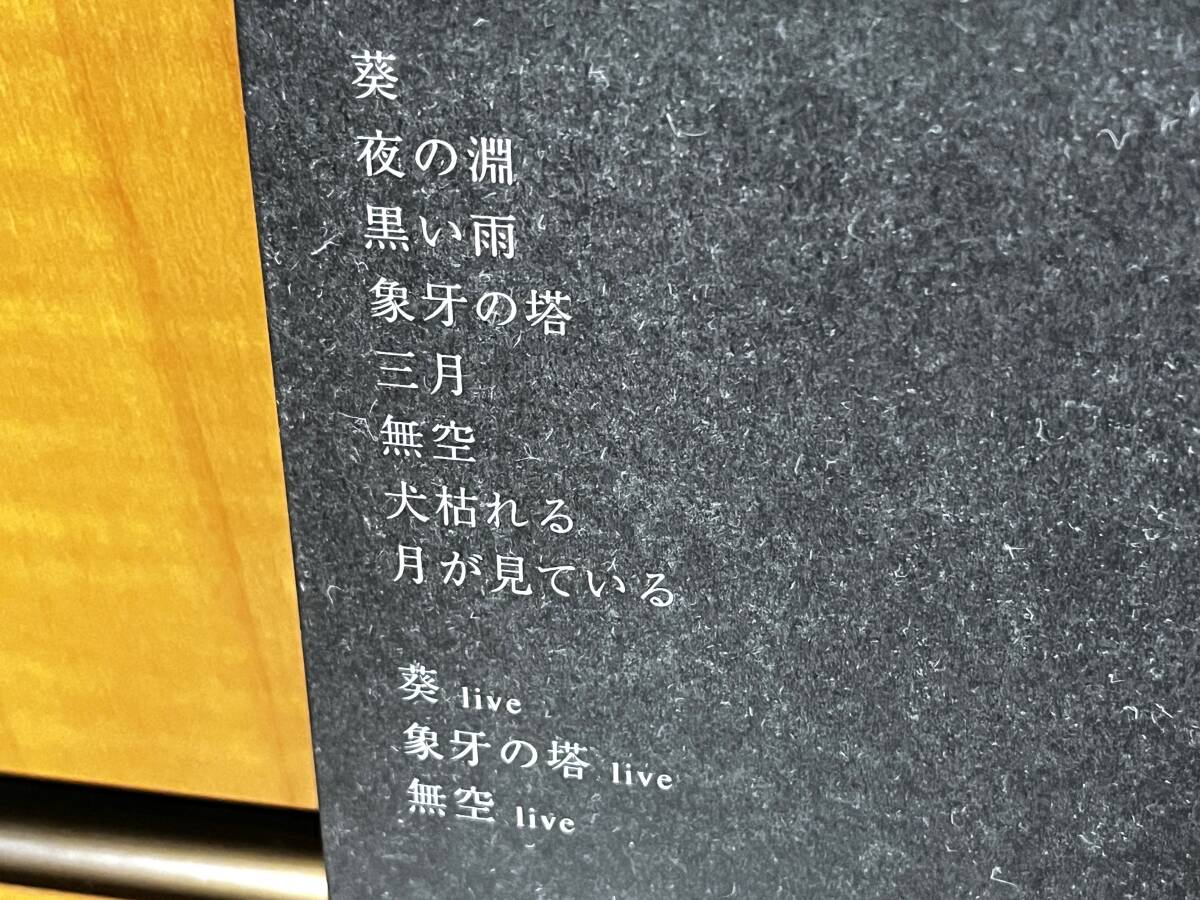 葵
夜の淵
黒い雨
象牙の塔
三月
無空
犬枯れる
月が見ている
葵 live
象牙の塔 live
無空 live